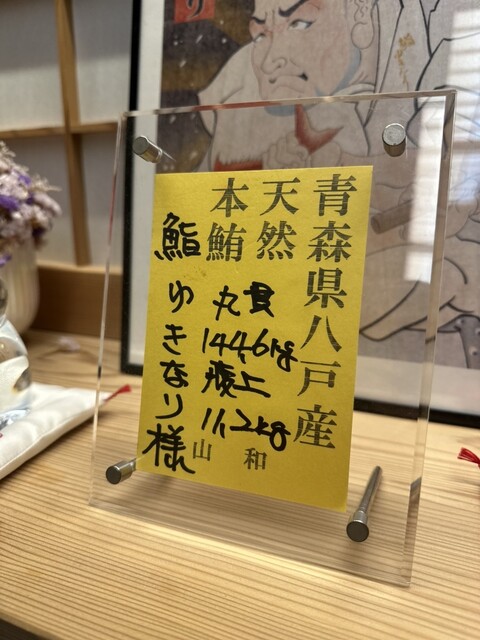 青森県八戸産
天然
本鮪
丸貫
144.6kg
腹上
11.2kg
山和
鮨ゆきなり様